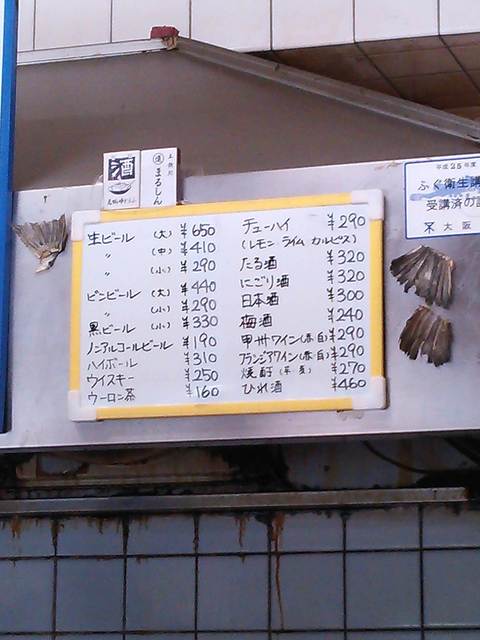 酒
まるしん
平成25年度
ふぐ衛生講
受講済の証
大阪
生ビール (大) ¥650
〃 (中) ¥410
〃 (小) ¥290
ビンビール (大) ¥440
〃 (小) ¥290
黒ビール (小) ¥330
ノンアルコールビール ¥190
ハイボール ¥310
ウイスキー ¥250
ウーロン茶 ¥160
チューハイ ¥290
(レモン ライム カルピス)
たる酒 ¥320
にごり酒 ¥320
日本酒 ¥300
梅酒 ¥240
甲州ワイン(赤・白) ¥290
フランジアワイン(赤・白) ¥290
焼酎(芋 麦) ¥270
ひれ酒 ¥460